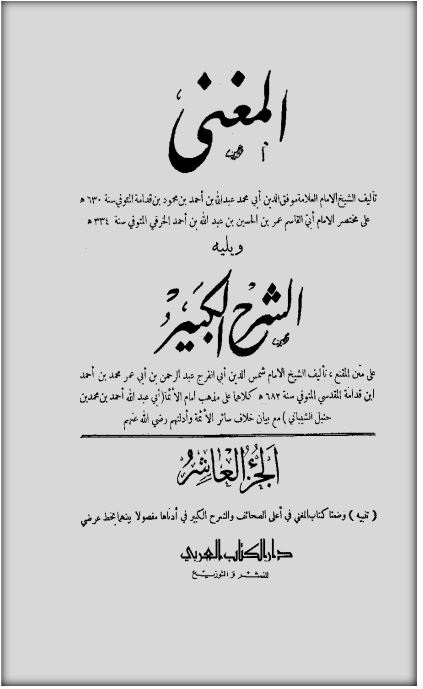 المغني
تأليف الشيخ الامام العلامة موفق الدين أبي محمد عبدالله بن أحمد بن محمود بن قدامة المتوفي سنة ٦٣٠ ه
على مختصر الامام أبي القاسم عمر بن الحسين بن عبد الله بن أحمد الخرقي المتوفي سنة ٣٣٤ ه
ويليه
الشرح الكبير
على متن المقنع ، تأليف الشيخ الامام شمس الدين أبي الفرج عبد الرحمن بن أبي عمر محمد بن أحمد
ابن قدامة المقدسي المتوفي سنة ٦٨٢ ه كلاهما على مذهب امام الأئمة (أبي عبد الله أحمد بن محمد بن
حنبل الشيباني ) مع بيان خلاف سائر الأئمة وأدلتهم رضي الله عنهم
الجزء العاشر
( تنبيه ) وضعنا كتاب المغني في أعلى الصحائف والشرح الكبير في أدناها مفصولا بينهما بخط عرضي
دار الكتاب العربي
للنشر والتوزيع